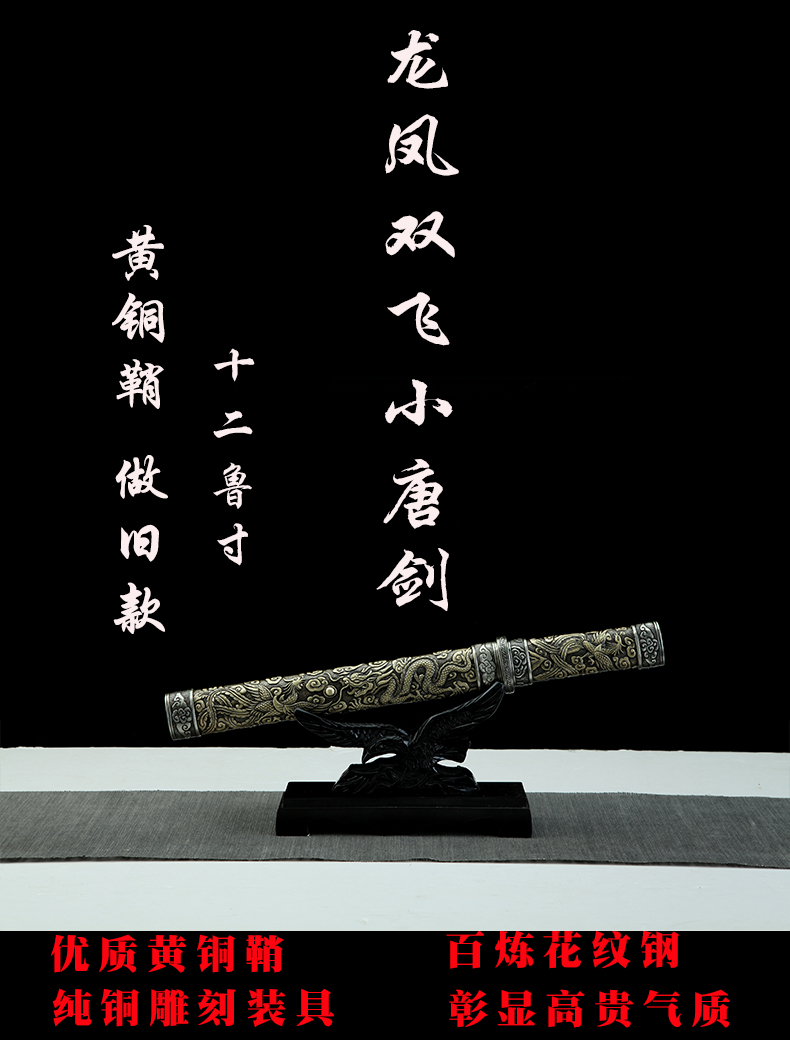 龙凤双飞小唐剑
十二鲁寸
黄铜鞘 做旧款
优质黄铜鞘
百炼花纹钢
纯铜雕刻装具
彰显高贵气质